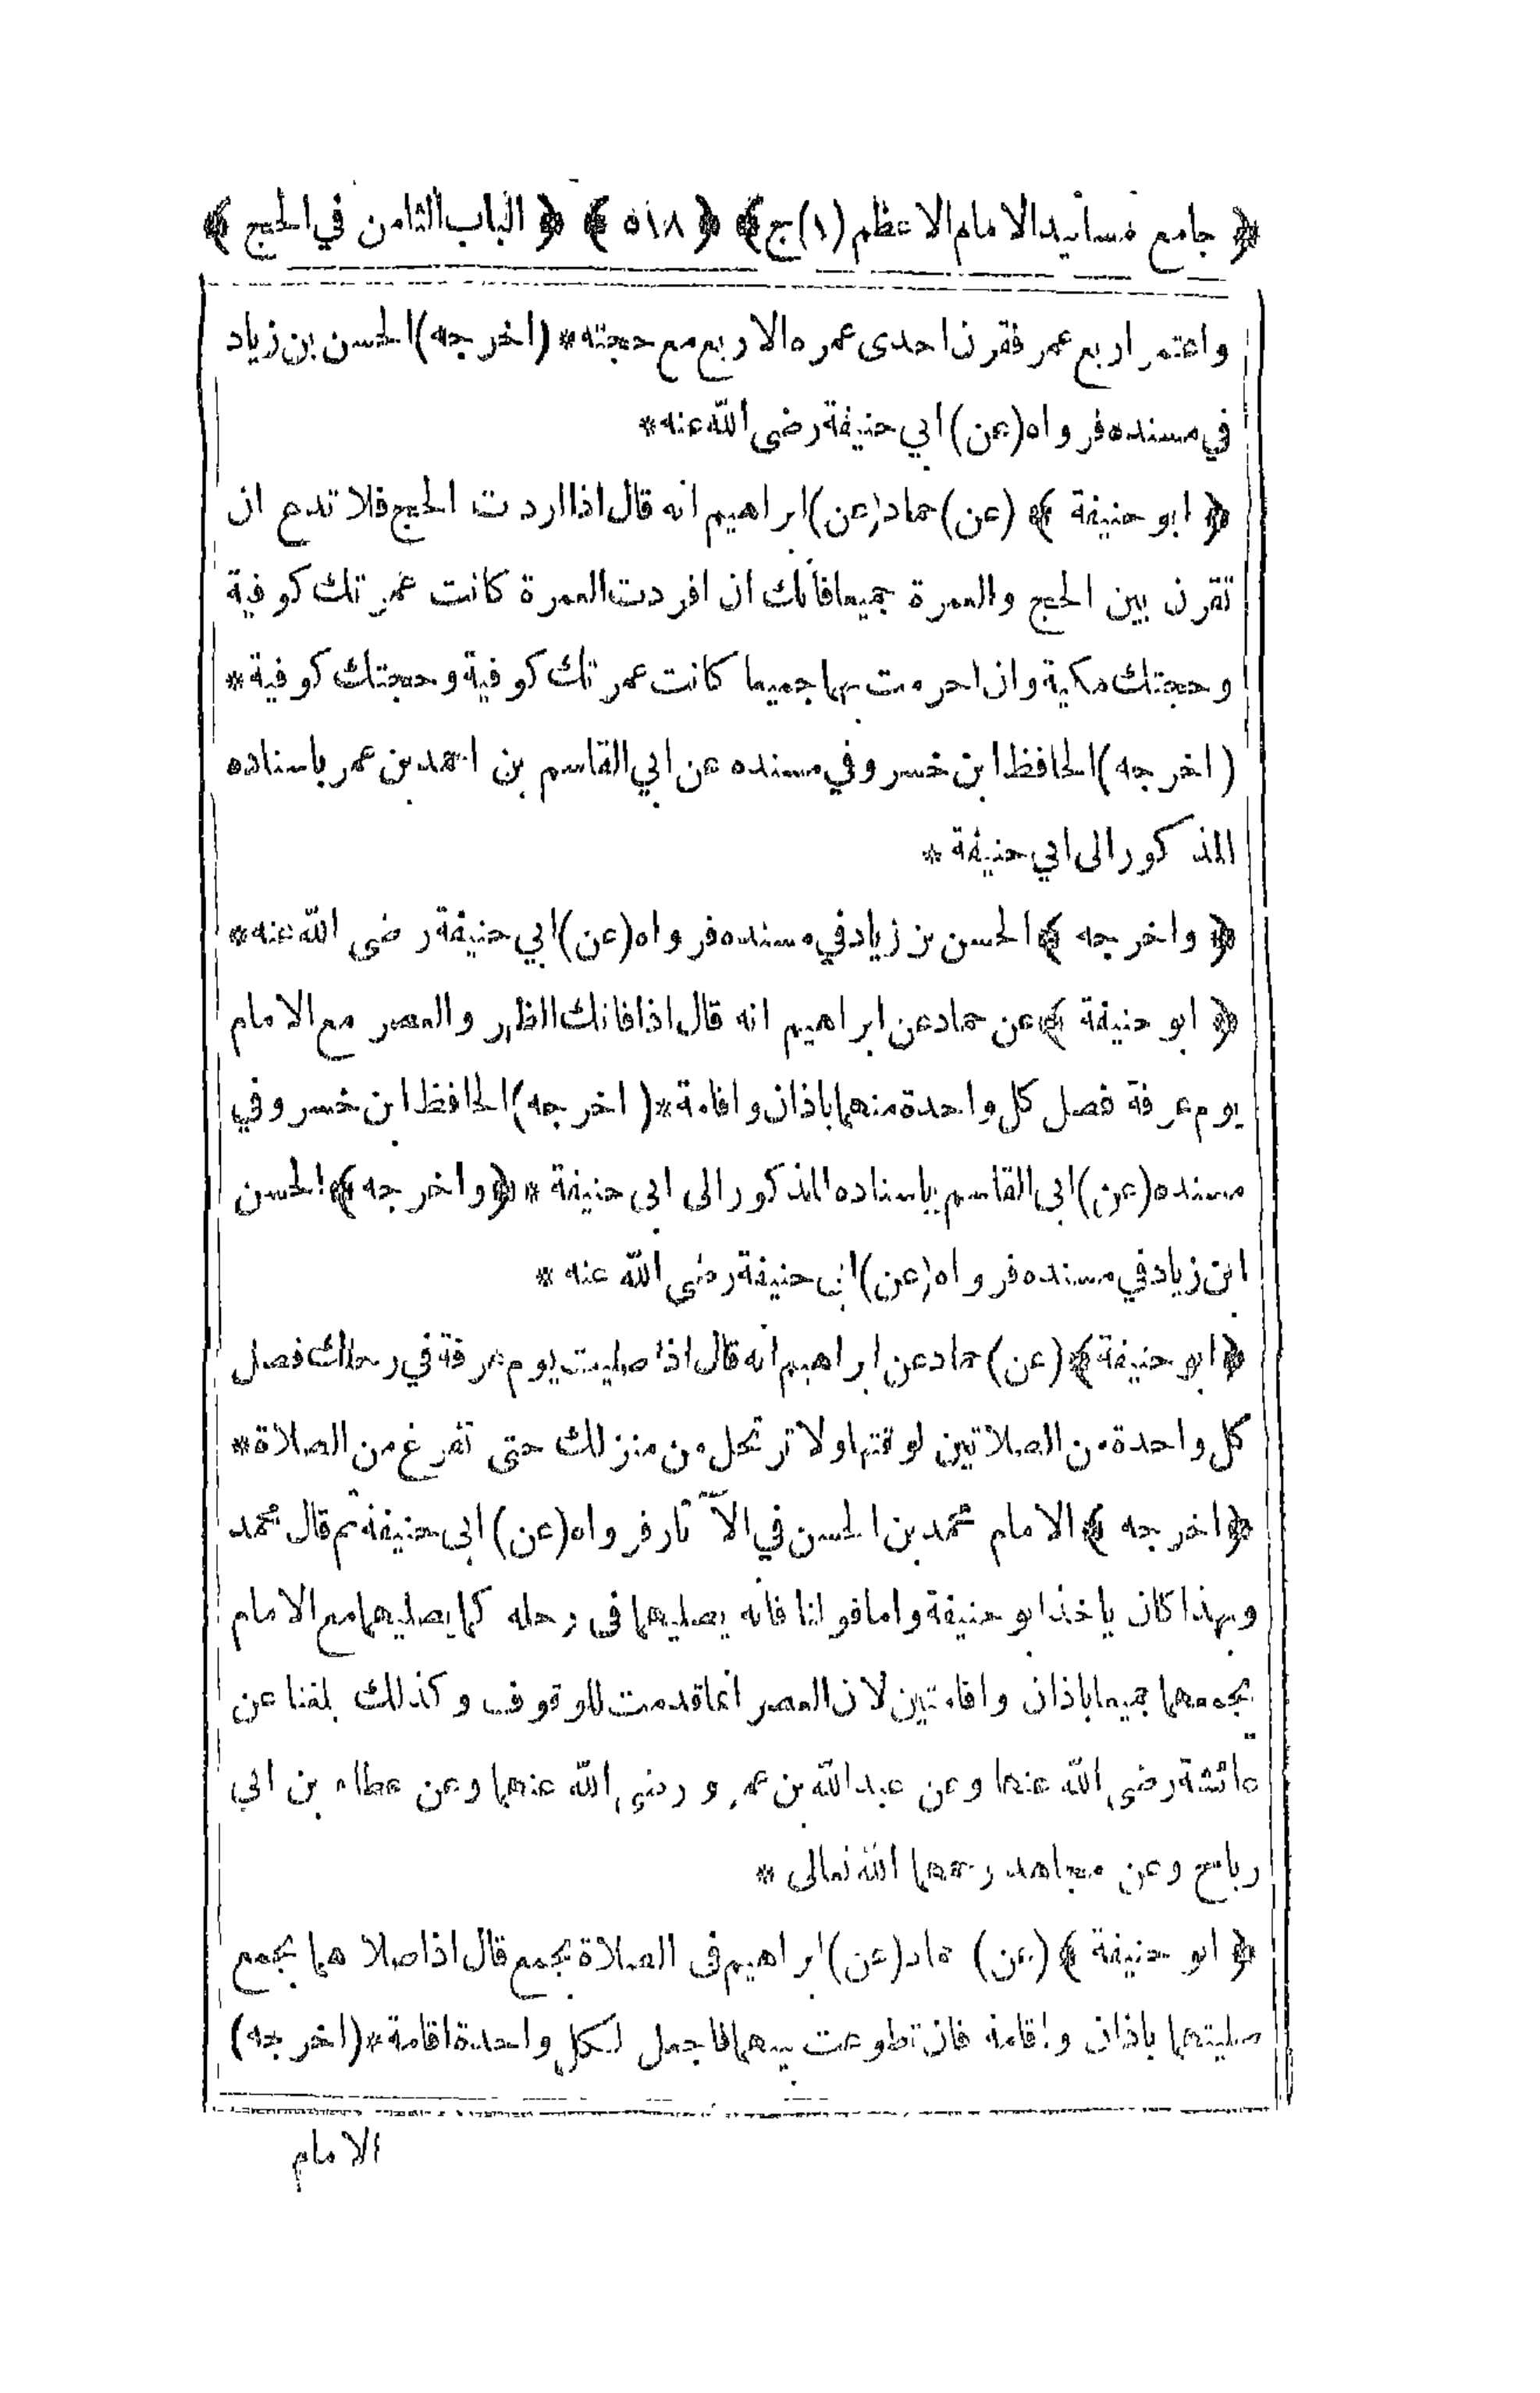 ﴿ جامع مسانيد الامام الاعظم (١) ج ﴾ ﴿ ٥١٨ ﴾ ﴿ الباب الثامن في الحج ﴾
واعتمر اربع عمر فقرن احدى عمره الاربع مع حجته * (اخرجه) الحسن بن زياد
في مسنده فرواه (عن) ابي حنيفة رضى الله عنه *
﴿ ابو حنيفة ﴾ (عن) حماد (عن) ابراهيم انه قال اذا اردت الحج فلا تدع ان
تقرن بين الحج والعمرة جميعا فانك ان افردت العمرة كانت عمرتك كوفية
وحجتك مكية وان احرمت بهما جميعا كانت عمرتك كوفية وحجتك كوفية *
(اخرجه) الحافظ ابن خسرو في مسنده عن ابي القاسم بن احمد بن عمر باسناده
المذكور الى ابي حنيفة *
﴿ واخرجه ﴾ الحسن بن زياد في مسنده فرواه (عن) ابي حنيفة رضى الله عنه *
﴿ ابو حنيفة ﴾ عن حماد عن ابراهيم انه قال اذا فاتك الظهر والعصر مع الامام
يوم عرفة فصل كل واحدة منهما باذان واقامة * (اخرجه) الحافظ ابن خسرو في
مسنده (عن) ابى القاسم باسناده المذكور الى ابى حنيفة * ﴿ واخرجه ﴾ الحسن
ابن زياد في مسنده فرواه (عن) ابى حنيفة رضى الله عنه *
﴿ ابو حنيفة ﴾ (عن) حماد عن ابراهيم انه قال اذا صليت يوم عرفة في رحلك فصل
كل واحدة من الصلاتين لوقتها ولا ترتحل من منزلك حتى تفرغ من الصلاة *
﴿ اخرجه ﴾ الامام محمد بن الحسن في الآثار فرواه (عن) ابى حنيفة ثم قال محمد
وبهذا كان ياخذ ابو حنيفة واما قولنا فانه يصليهما فى رحله كما يصليهما مع الامام
يجمعهما جميعا باذان واقامتين لان العصر انما قدمت للوقوف وكذلك بلغنا عن
عائشة رضى الله عنها وعن عبد الله بن عمرو رضى الله عنهما وعن عطاء بن ابي
رباح وعن مجاهد رحمهما الله تعالى *
﴿ ابو حنيفة ﴾ (عن) حماد (عن) ابراهيم فى الصلاة بجمع قال اذا صلاهما بجمع
صليتهما باذان واقامة فان تطوعت بينهما فاجعل لكل واحدة اقامة * (اخرجه)
الامام